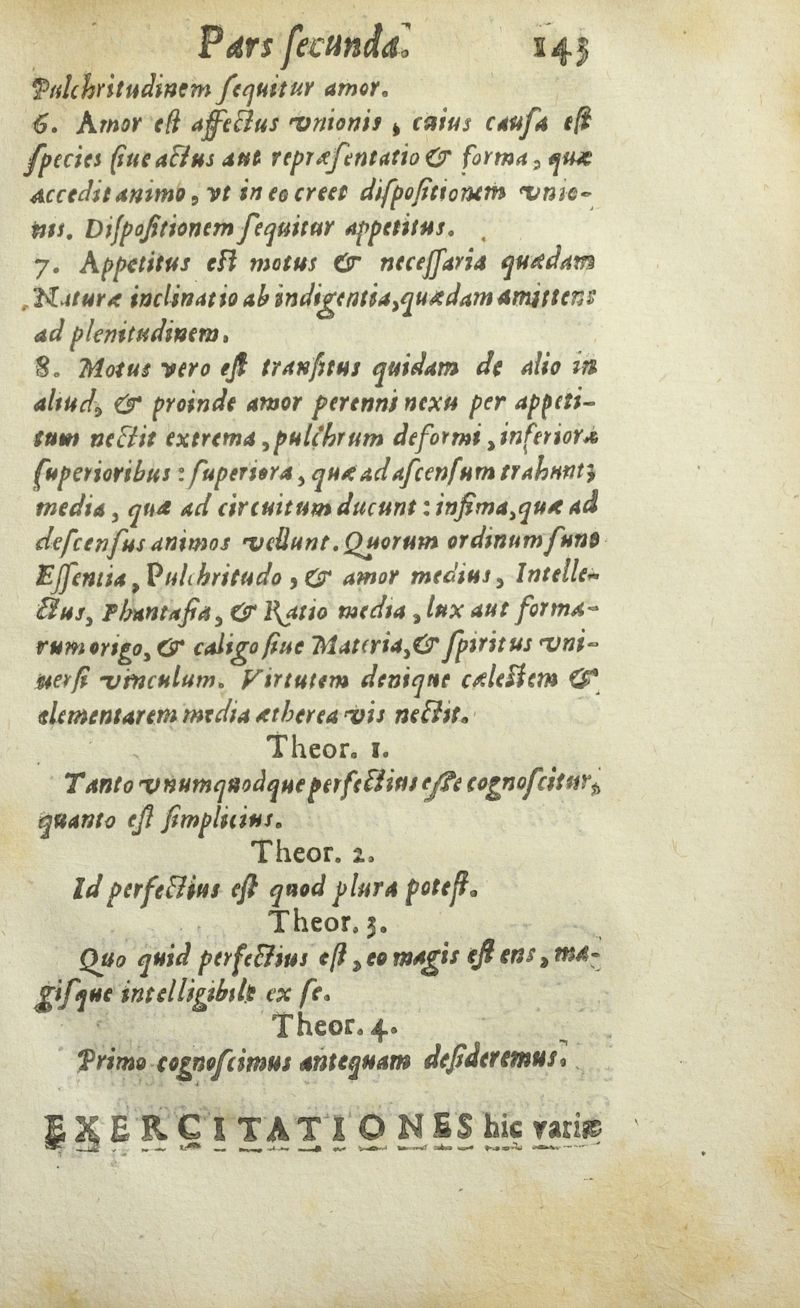 Pars ſecunda. 143
Pulchritudinem ſequitur amor.
6. Amor eſt affectus vnionis, cuius cauſa eſt
ſpecies ſiue actus aut repræſentatio & forma, quæ
accedit animo, vt in eo creet diſpoſitionem vnio-
nis. Diſpoſitionem ſequitur appetitus.
7. Appetitus eſt motus & neceſſaria quædam
Naturæ inclinatio ab indigentia, quædam amittens
ad plenitudinem.
8. Motus vero eſt tranſitus quidam de alio in
aliud, & proinde amor perenni nexu per appeti-
tum nectit extrema, pulchrum deformi, inferiora
ſuperioribus : ſuperiora, quæ ad aſcenſum trahunt;
media, quæ ad circuitum ducunt : infima, quæ ad
deſcenſus animos vellunt. Quorum ordinum ſunt
Eſſentia, Pulchritudo, & amor medius, Intelle-
ctus, Phantaſia, & Ratio media, lux aut forma-
rum origo, & caligo ſiue Materia, & ſpiritus vni-
uerſi vinculum. Virtutem denique cæleſtem &
elementarem media ætherea vis nectit.
Theor. 1.
Tanto vnumquodque perfectius eſſe cognoſcitur,
quanto eſt ſimplicius.
Theor. 2.
Id perfectius eſt quod plura poteſt.
Theor. 3.
Quo quid perfectius eſt, eo magis eſt ens, ma-
giſque intelligibile ex ſe.
Theor. 4.
Primo cognoſcimus antequam deſideremus.
EXERCITATIONES hic variæ